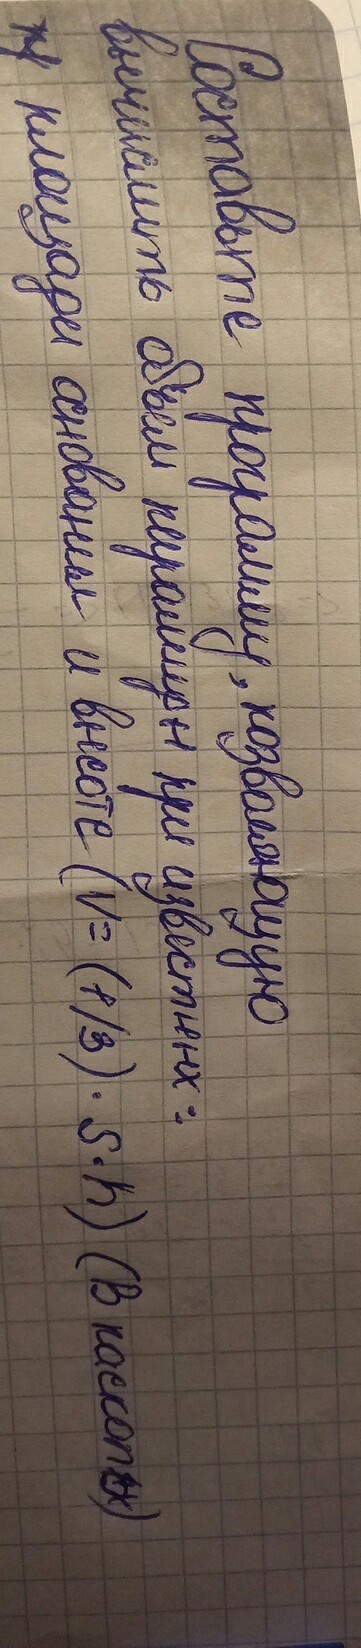 Составьте программу, позволяющую
вычислить объем пирамиды при известных:
площади основания и высоте (V=(1/3)·S·h) (В паскалях)